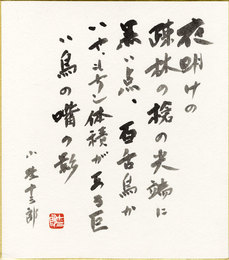 夜明けの
疎林の桧の尖端に
黒い点、百舌鳥か
いや、もっと体積がある巨
い鳥の嘴の影
小野十三郎